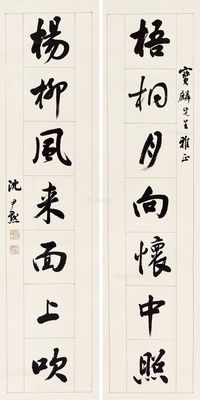 梧桐月向懷中照
寶麟先生雅正
楊柳風来面上吹
沈尹默